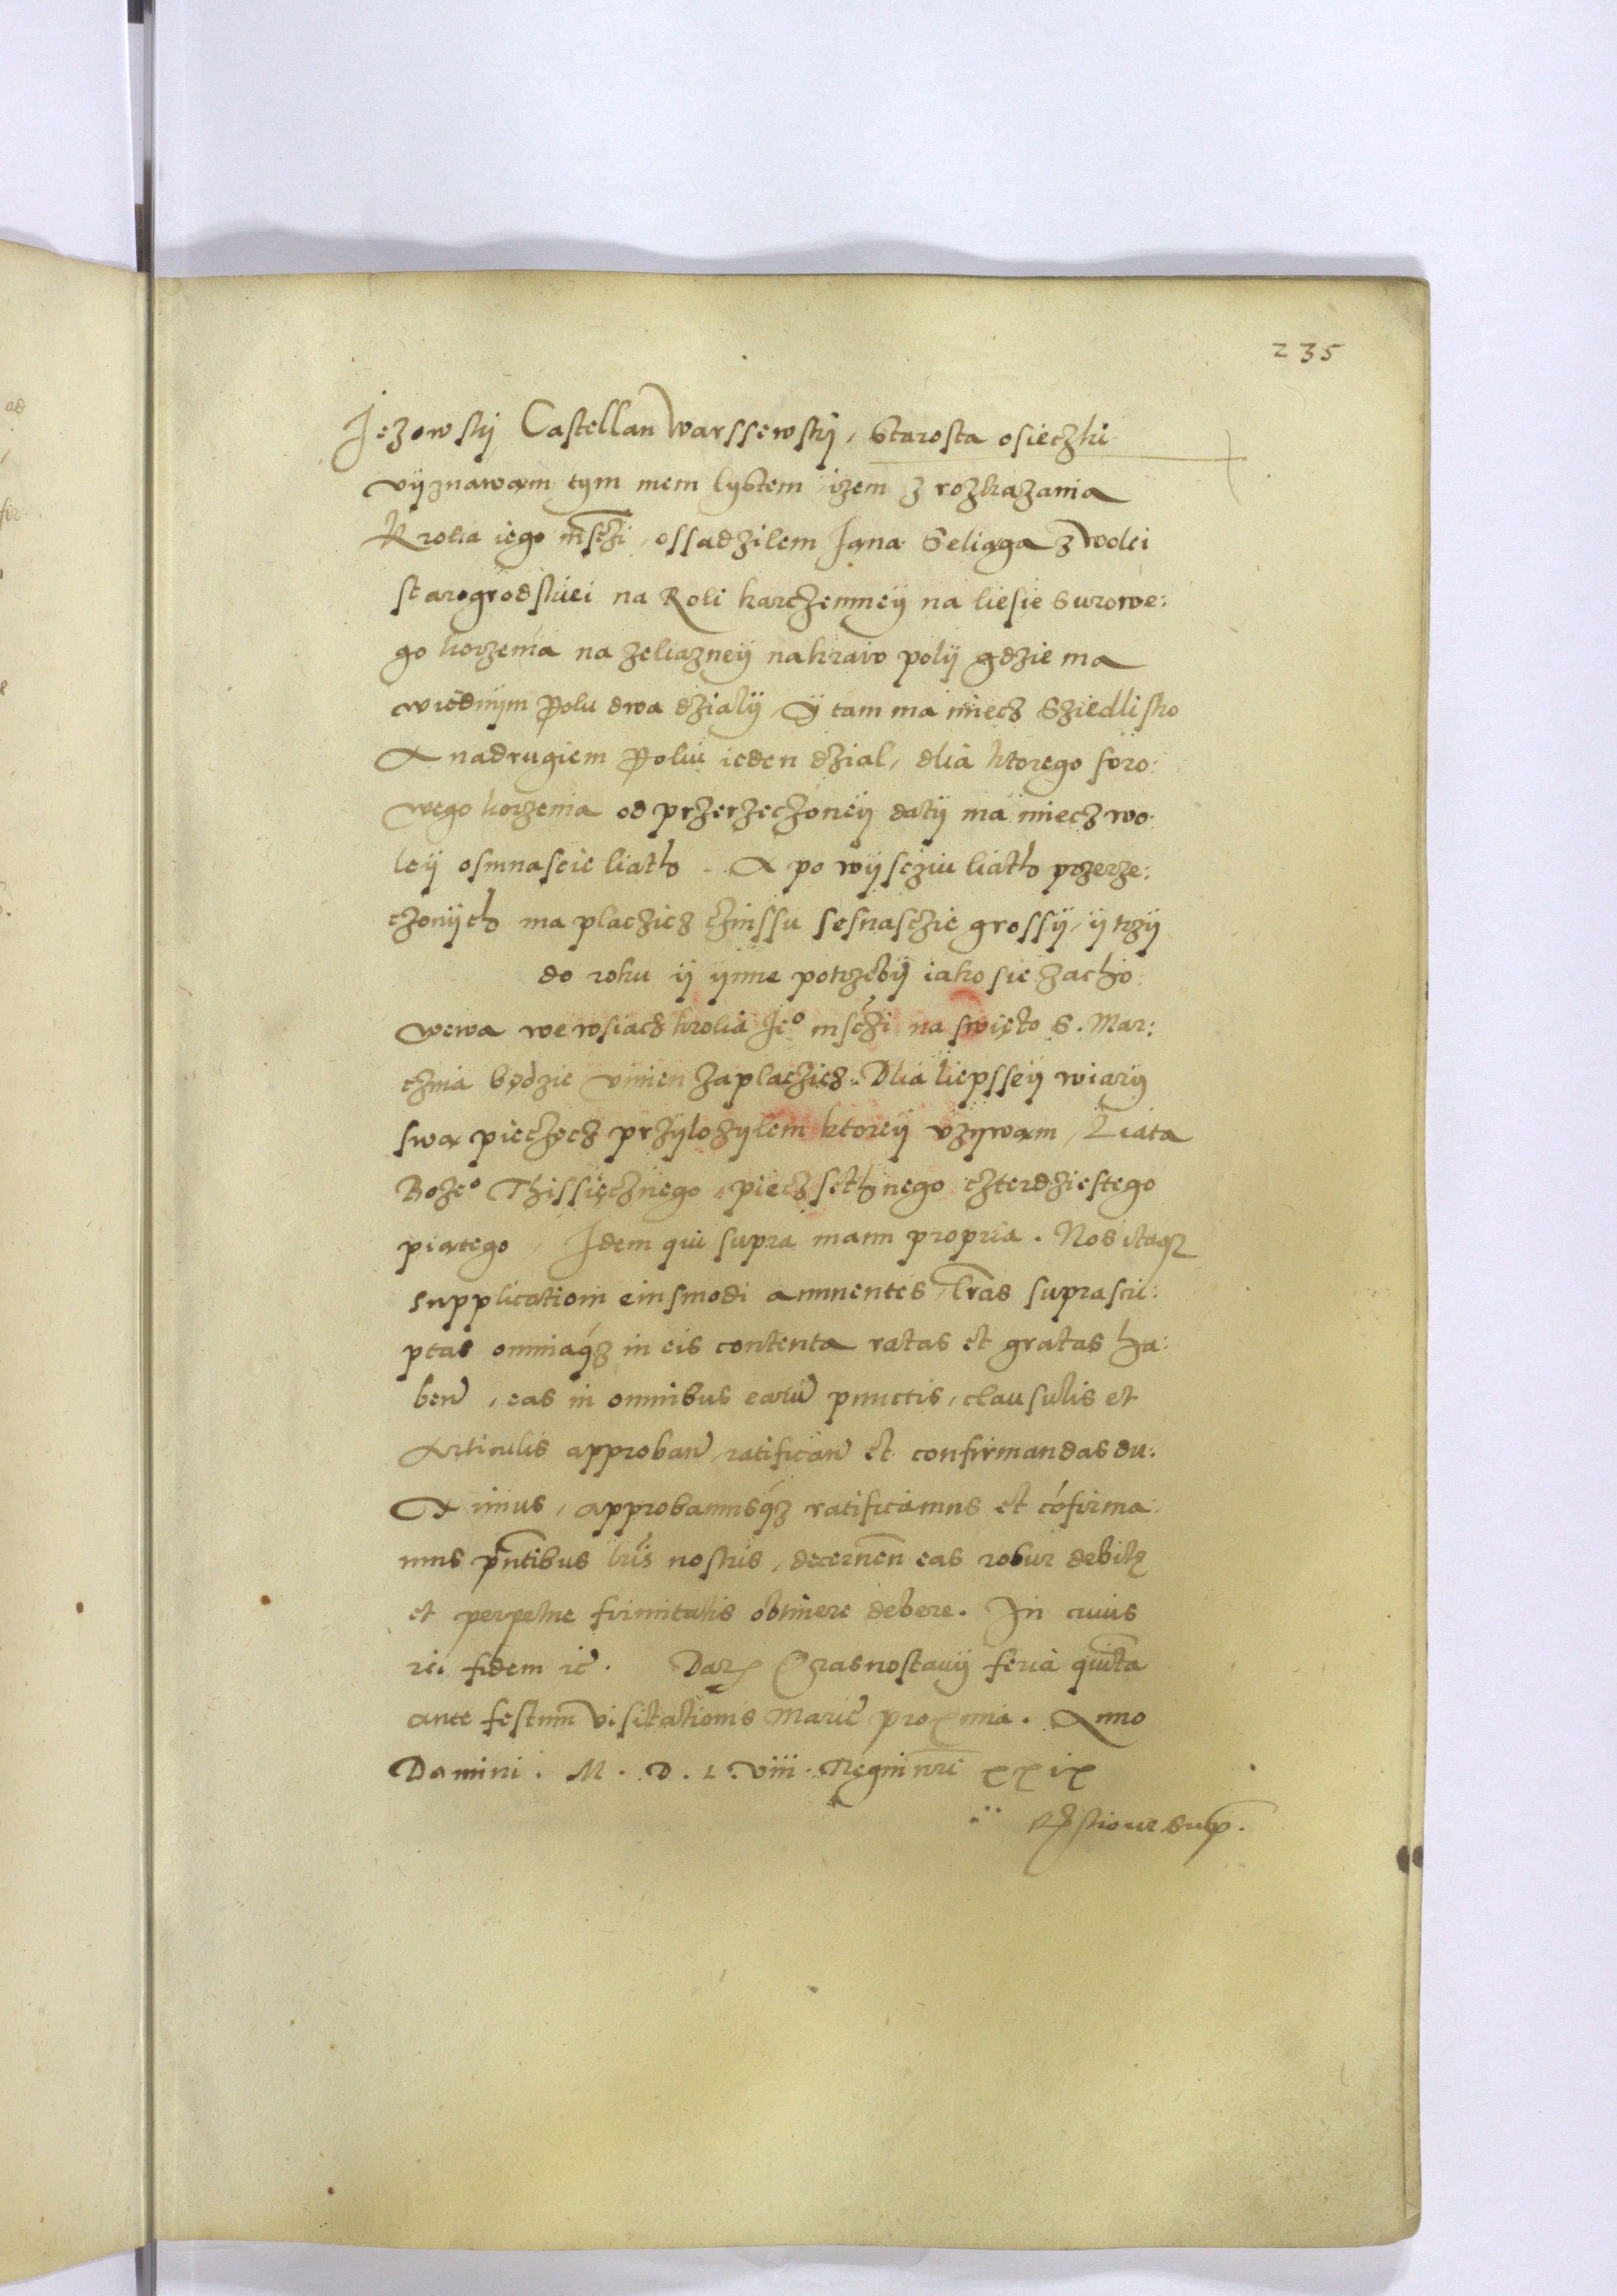 235
Jezowskÿ Castellan Warssewskÿ, Starosta osieczki
vÿznawam tym mem lÿstem izem z rozkazania
Krolia iego msczi, ossadzilem Jana Seliąga z Wolei
starogrodskiei na Roli karczemneÿ na liesie Surowe:
go korzenia na zeliazneÿ na kraio polÿ gdzie ma
wiednÿm Polu dwa dzialÿ, Ÿ tam ma miecz Sziedlisko
A nadrugiem Poliu ieden dzial, dlia ktorego soro:
wego korzenia od przerzeczoneÿ datÿ ma miecz wo
leÿ osmnascie liath. A po wÿscziu liath przerze:
czonÿch ma placzicz czinssu sesnasczie grossÿ, ÿ trzÿ
do roku ÿ ÿnne potrzebÿ iako sie zacho:
wewa we wsiach krolia Jeº msczi na swięto S. Mar:
czina będzie vinien zaplaczicz. Dlia liepsseÿ wiarÿ
swa pieczęcz przÿlozÿlem ktoreÿ vzÿwam, Liata
Bozeº Thissięcznego, pieczsethnego czterdziestego
piątego, Idem qui supra manu propria. Nos itaqz
supplicationi eiusmodi annuentes, lras suprascri:
ptas omniaqz in eis contenta ratas et gratas ha:
ben, eas in omnibus earu punctis, clausulis et
Articulis approban, ratifican et confirmandas du:
ximus, approbamusqz ratificamus et cofirma
mus pntibus lris nostris, decernen eas robur debitę
et perpetue firmitatis obtinere debere. In cuius
rei fidem ic. Dat Crasnostavÿ feria quinta
ante festum visitationis Marie proxima. Anno
Domini. M. D. L. viii. Regni nri xxix
Rstione sup.